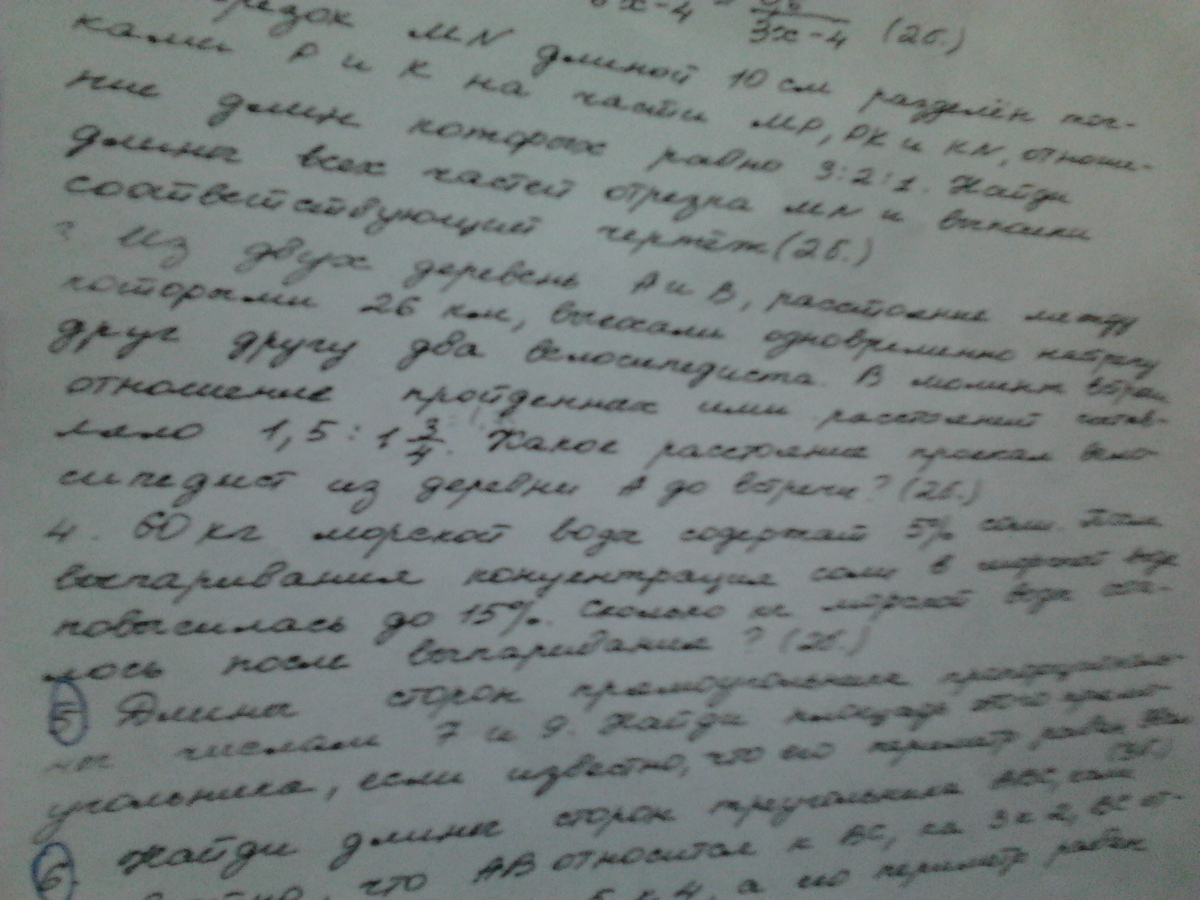 6x-4 = 3x-4 (2б.)
отрезок MN длиной 10 см разделён точ-
ками P и K на части MP, PK и KN, отноше-
ние длин которых равно 3:2:1. Найди
длины всех частей отрезка MN и выполни
соответствующий чертёж (2б.)
Из двух деревень A и B, расстояние между
которыми 26 км, выехали одновременно навстречу
друг другу два велосипедиста. В момент встречи
отношение пройденных ими расстояний состав-
ляло 1,5 : 1 3/4. Какое расстояние проехал вело-
сипедист из деревни A до встречи? (2б.)
4. 60 кг морской воды содержат 5% соли. После
выпаривания концентрация соли в морской воде
повысилась до 15%. Сколько кг морской воды оста-
лось после выпаривания? (2б.)
5 Длины сторон прямоугольника пропорциональ-
ны числам 7 и 9. Найди площадь этого прямо-
угольника, если известно, что его периметр равен
(3б.)
6 Найди длины сторон треугольника ABC, если
что AB относится к BC, как 3 к 2, BC от-
к 4, а его периметр равен